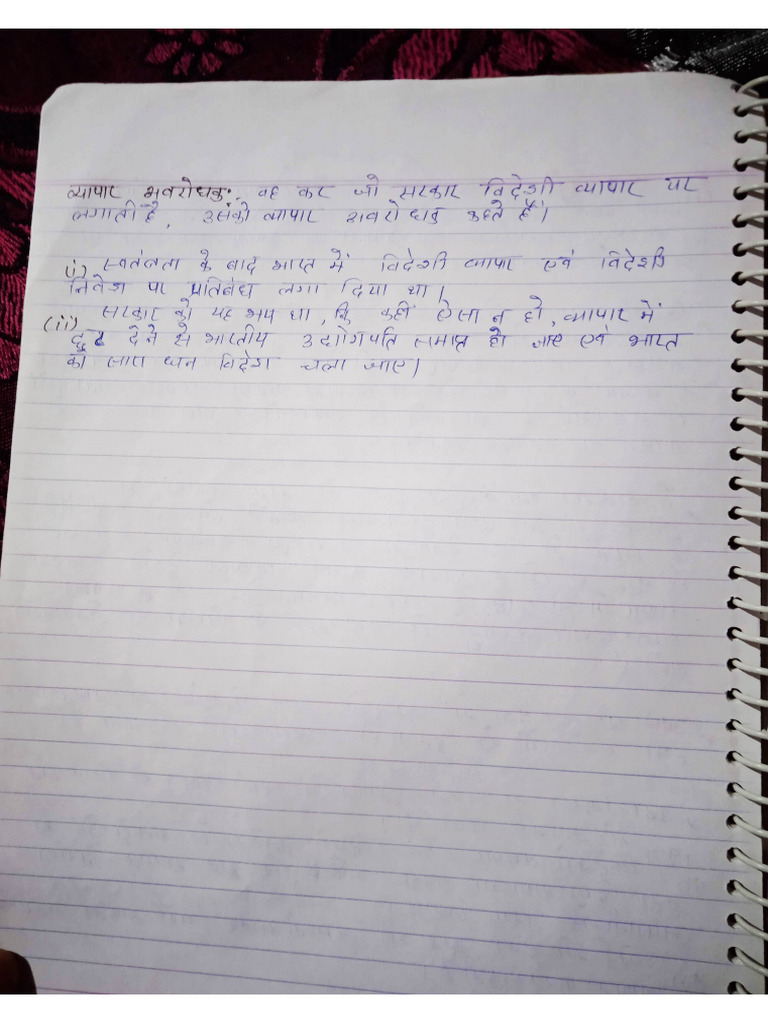 व्यापार अवरोधक: वह कर जो सरकार विदेशी व्यापार पर
लगाती है, उसको व्यापार अवरोधक कहते हैं।
(i) स्वतंत्रता के बाद भारत में विदेशी व्यापार एवं विदेशी
निवेश पर प्रतिबंध लगा दिया था।
(ii) सरकार को यह भय था, कि कहीं ऐसा न हो, व्यापार में
छुट देने से भारतीय उद्योगपति समाप्त हो जाए एवं भारत
का सारा धन विदेश चला जाए।